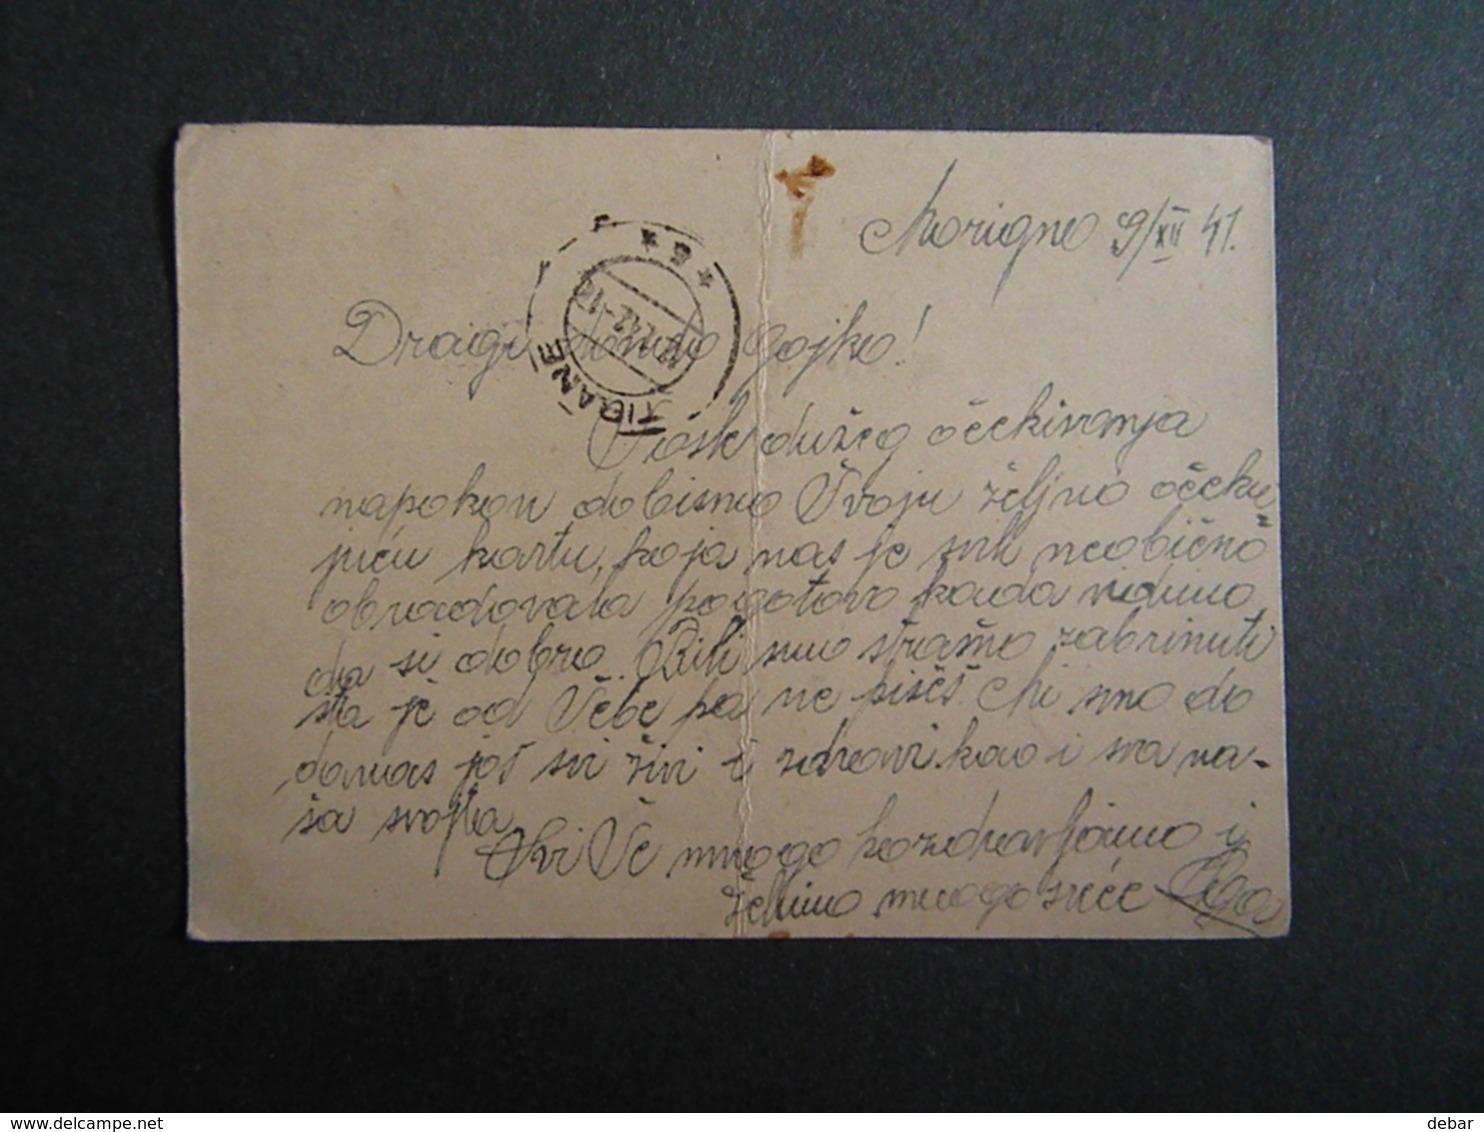 Morigno 9/XII 41.
Dragi Gojko!
Posle dužeg očekivanja
napokon dobismo Tvoju željno očeku
juću kartu, koja nas je svih neobično
obradovala pogotovo kada vidimo
da si dobro. Bili smo strašno zabrinuti
šta je od Tebe pa ne pišeš. Mi smo do
danas još svi živi i zdravi kao i sva na-
ša svojta.
Svi Te mnogo pozdravljamo i
želimo mnogo sreće
TIRANE
6
delcampe.net
debar